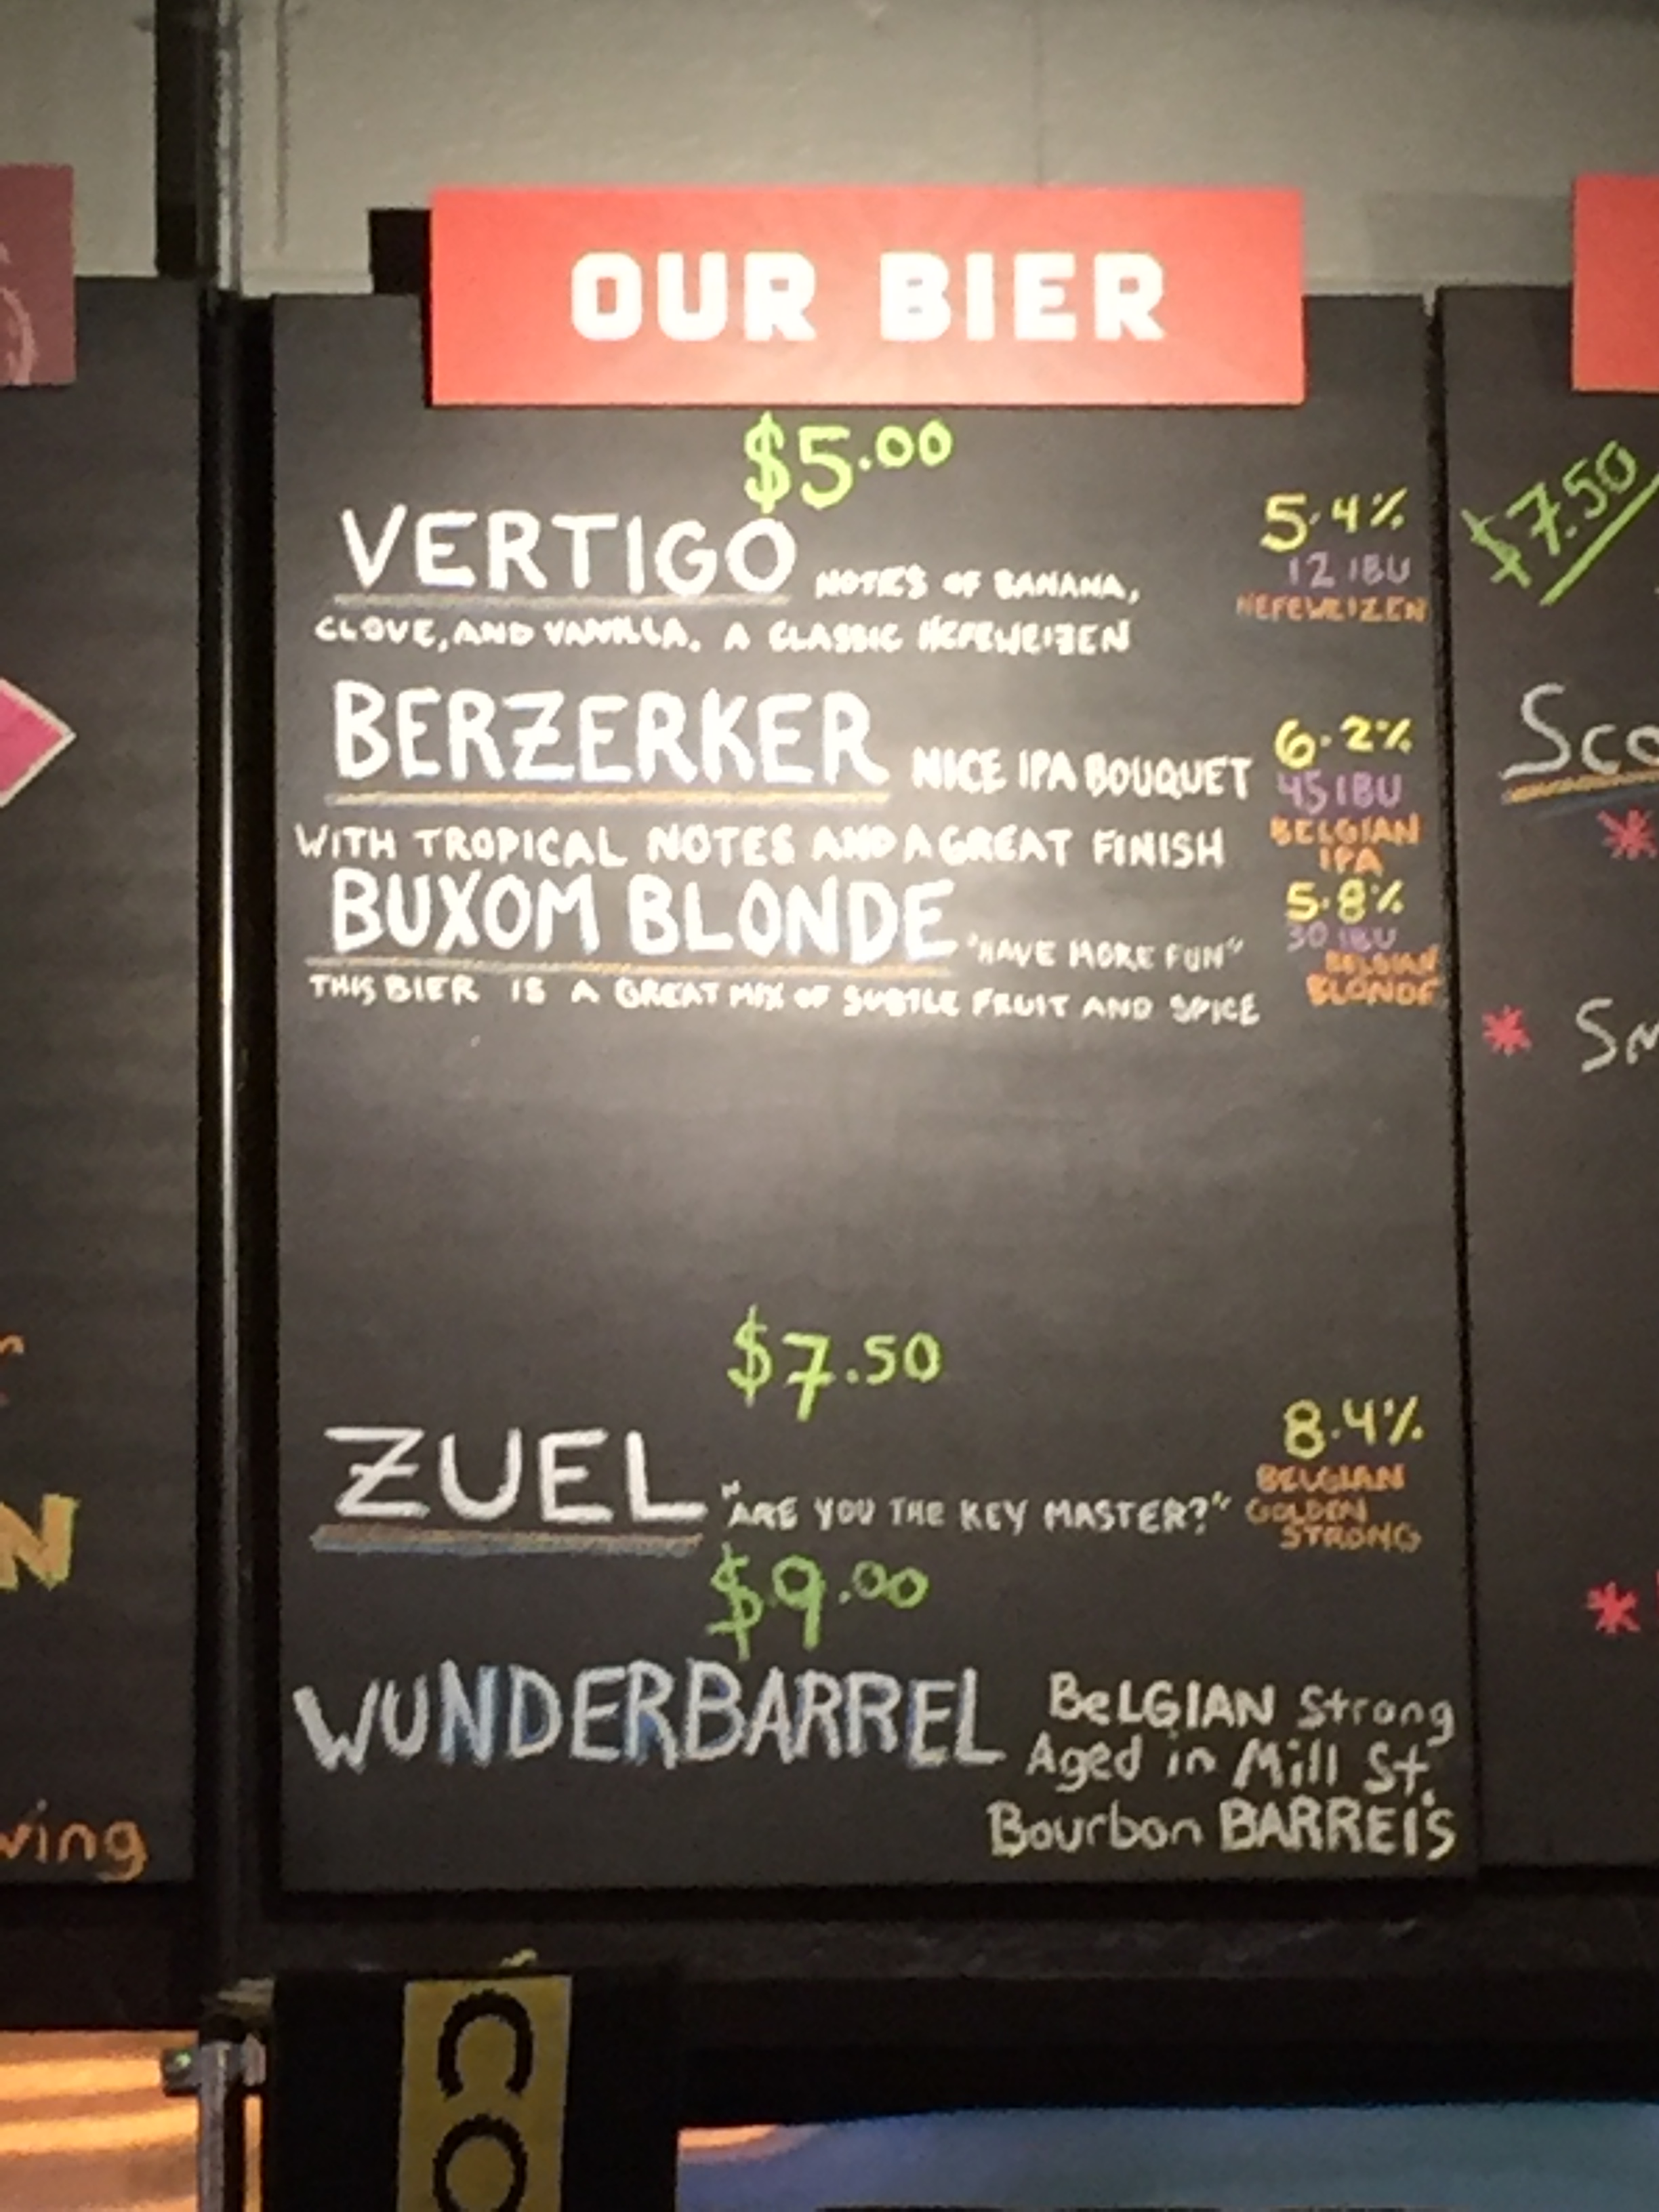 OUR BIER
$5.00
VERTIGO NOTES OF BANANA,
CLOVE, AND VANILLA. A CLASSIC HEFEWEIZEN
5.4%
12 IBU
HEFEWEIZEN
BERZERKER NICE IPA BOUQUET
WITH TROPICAL NOTES AND A GREAT FINISH
6.2%
45 IBU
BELGIAN
IPA
BUXOM BLONDE "HAVE MORE FUN"
THIS BIER IS A GREAT MIX OF SUBTLE FRUIT AND SPICE
5.8%
30 IBU
BELGIAN
BLONDE
$7.50
ZUEL "ARE YOU THE KEY MASTER?"
8.4%
BELGIAN
GOLDEN
STRONG
$9.00
WUNDERBARREL BeLGIAN Strong
Aged in Mill St.
Bourbon BARREls
$7.50
Sco
* Sn
N
ving
CO